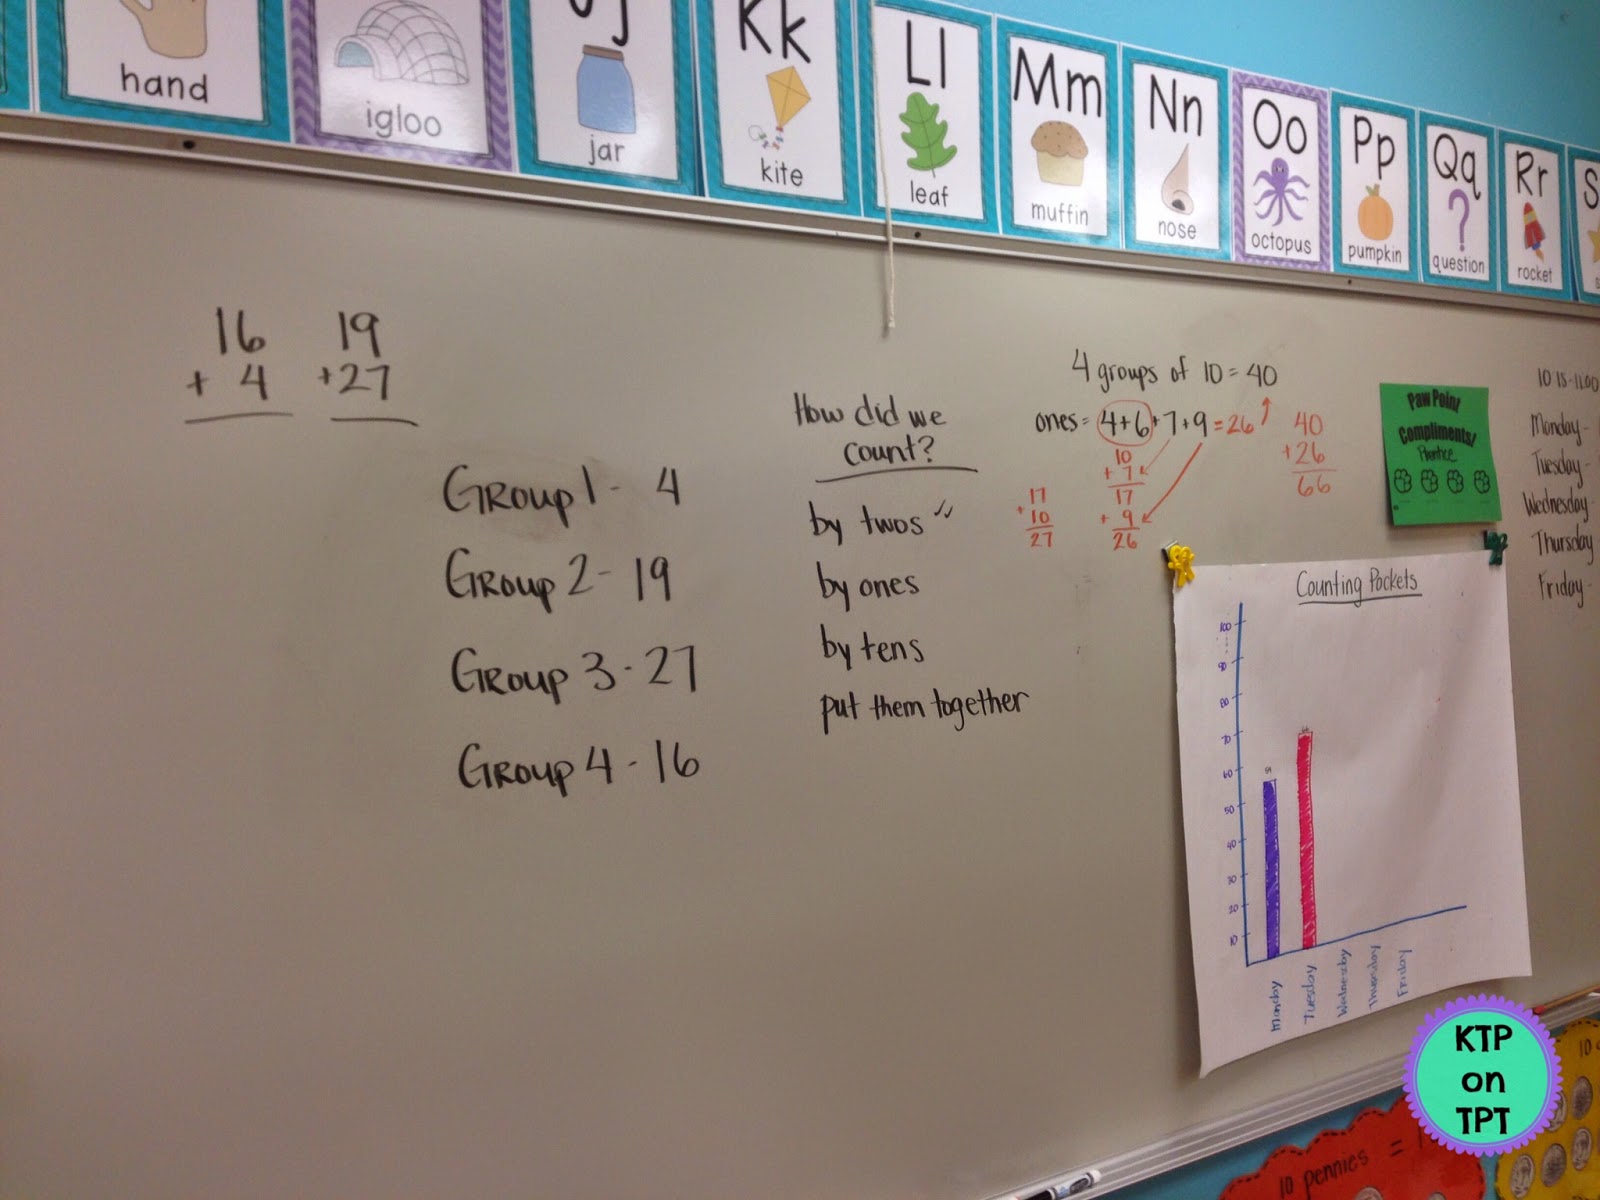 hand
igloo
Jj
jar
Kk
kite
Ll
leaf
Mm
muffin
Nn
nose
Oo
octopus
Pp
pumpkin
Qq
?
question
Rr
rocket
S
16
+ 4
19
+27
Group 1 - 4
Group 2 - 19
Group 3 - 27
Group 4 - 16
How did we
count?
by twos
by ones
by tens
put them together
4 groups of 10 = 40
ones = 4+6+7+9 = 26
10
+ 7
17
+ 9
26
17
+ 10
27
40
+26
66
Paw Point
Compliments!
10 15-11:00
Monday-
Tuesday-
Wednesday-
Thursday
Friday-
Counting Pockets
100
90
80
70
60
50
40
30
20
10
Monday
Tuesday
Wednesday
Thursday
Friday
KTP
on
TPT
10 pennies =
10